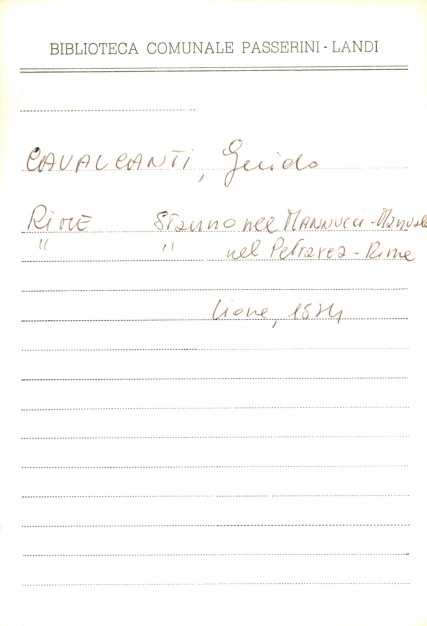 BIBLIOTECA COMUNALE PASSERINI - LANDI
CAVALCANTI, Guido
RIME Stanno nel MANNUCCI - Manuale
" " nel Petrarca - Rime
Lione, 1574